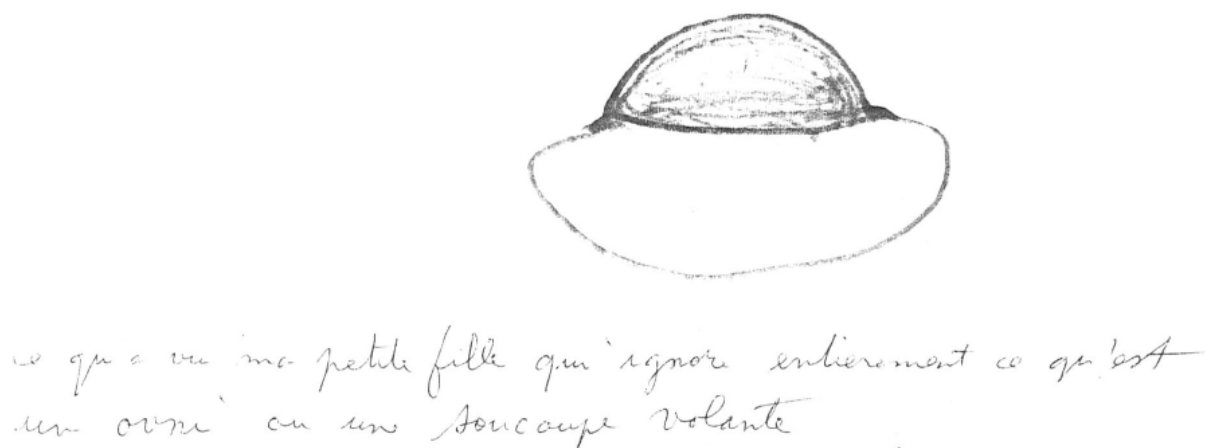 ce qu'a vu ma petite fille qui ignore entierement ce qu'est
un ovni ou une soucoupe volante